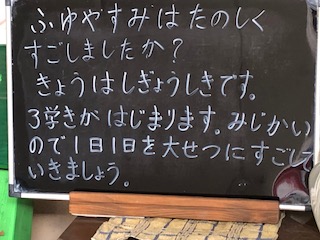 ふゆやすみはたのしく
すごしましたか？
きょうはしぎょうしきです。
3学きがはじまります。みじかい
ので1日1日を大せつにすごして
いきましょう。